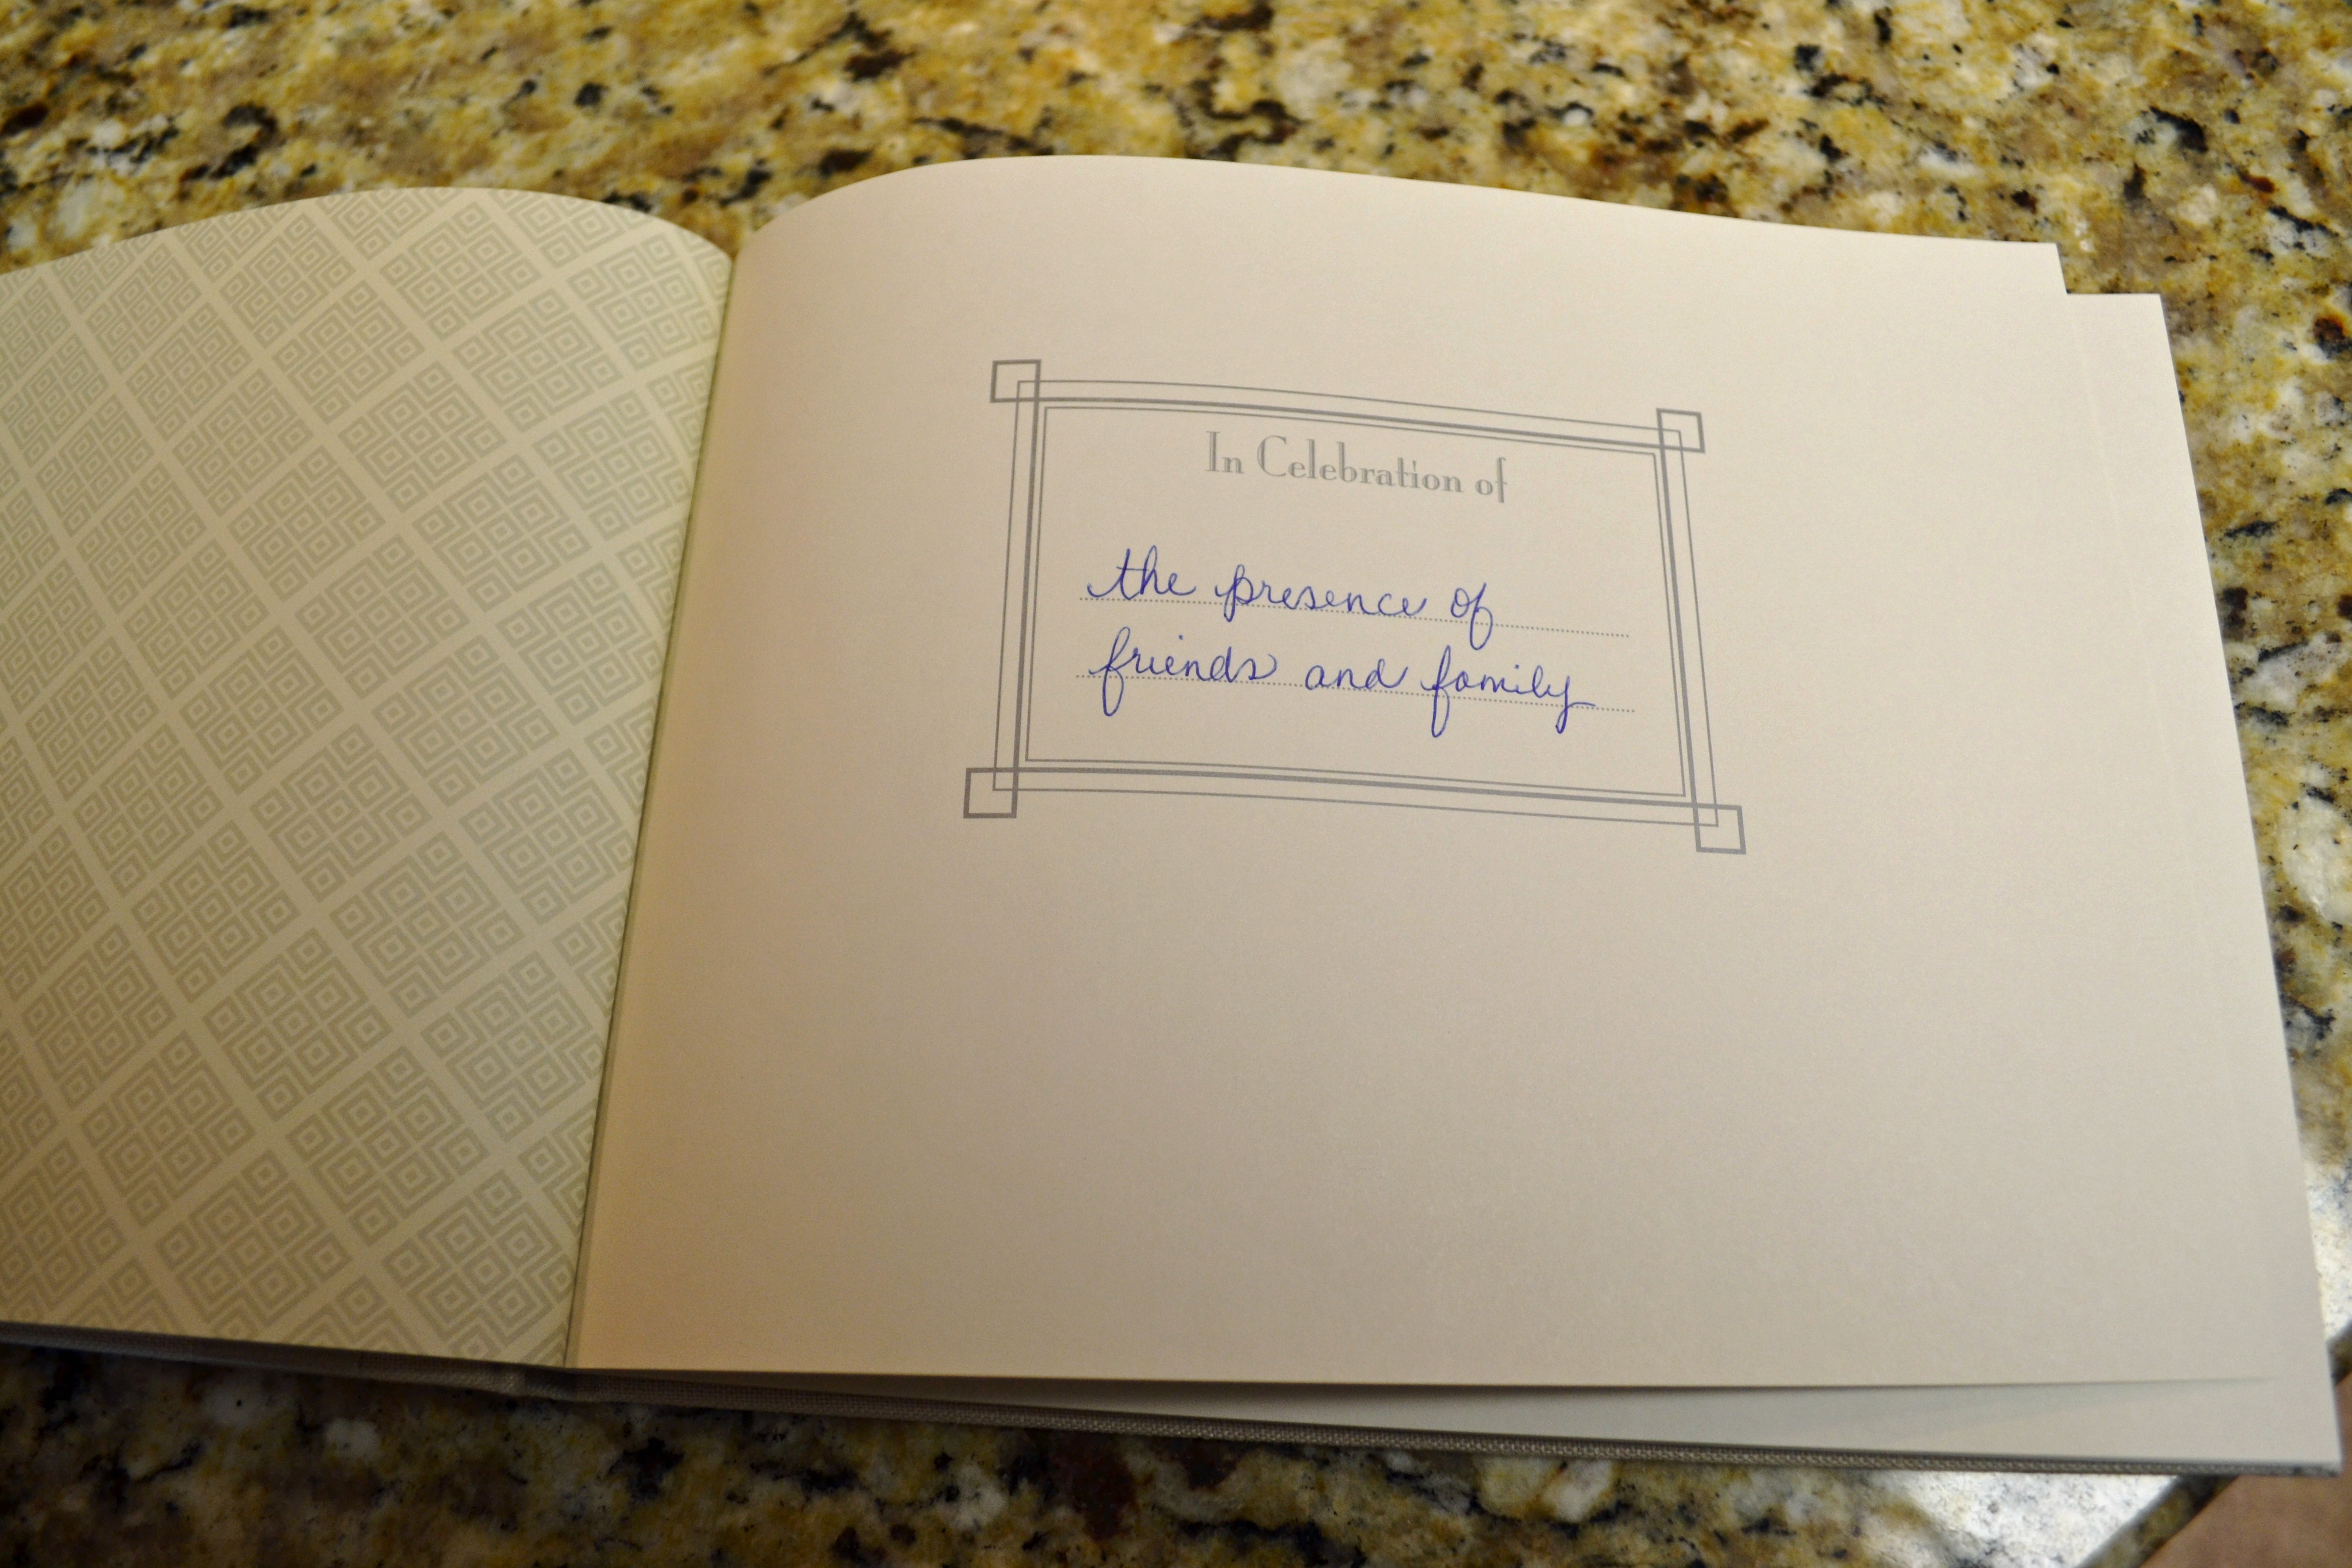 In Celebration of
the presence of
friends and family